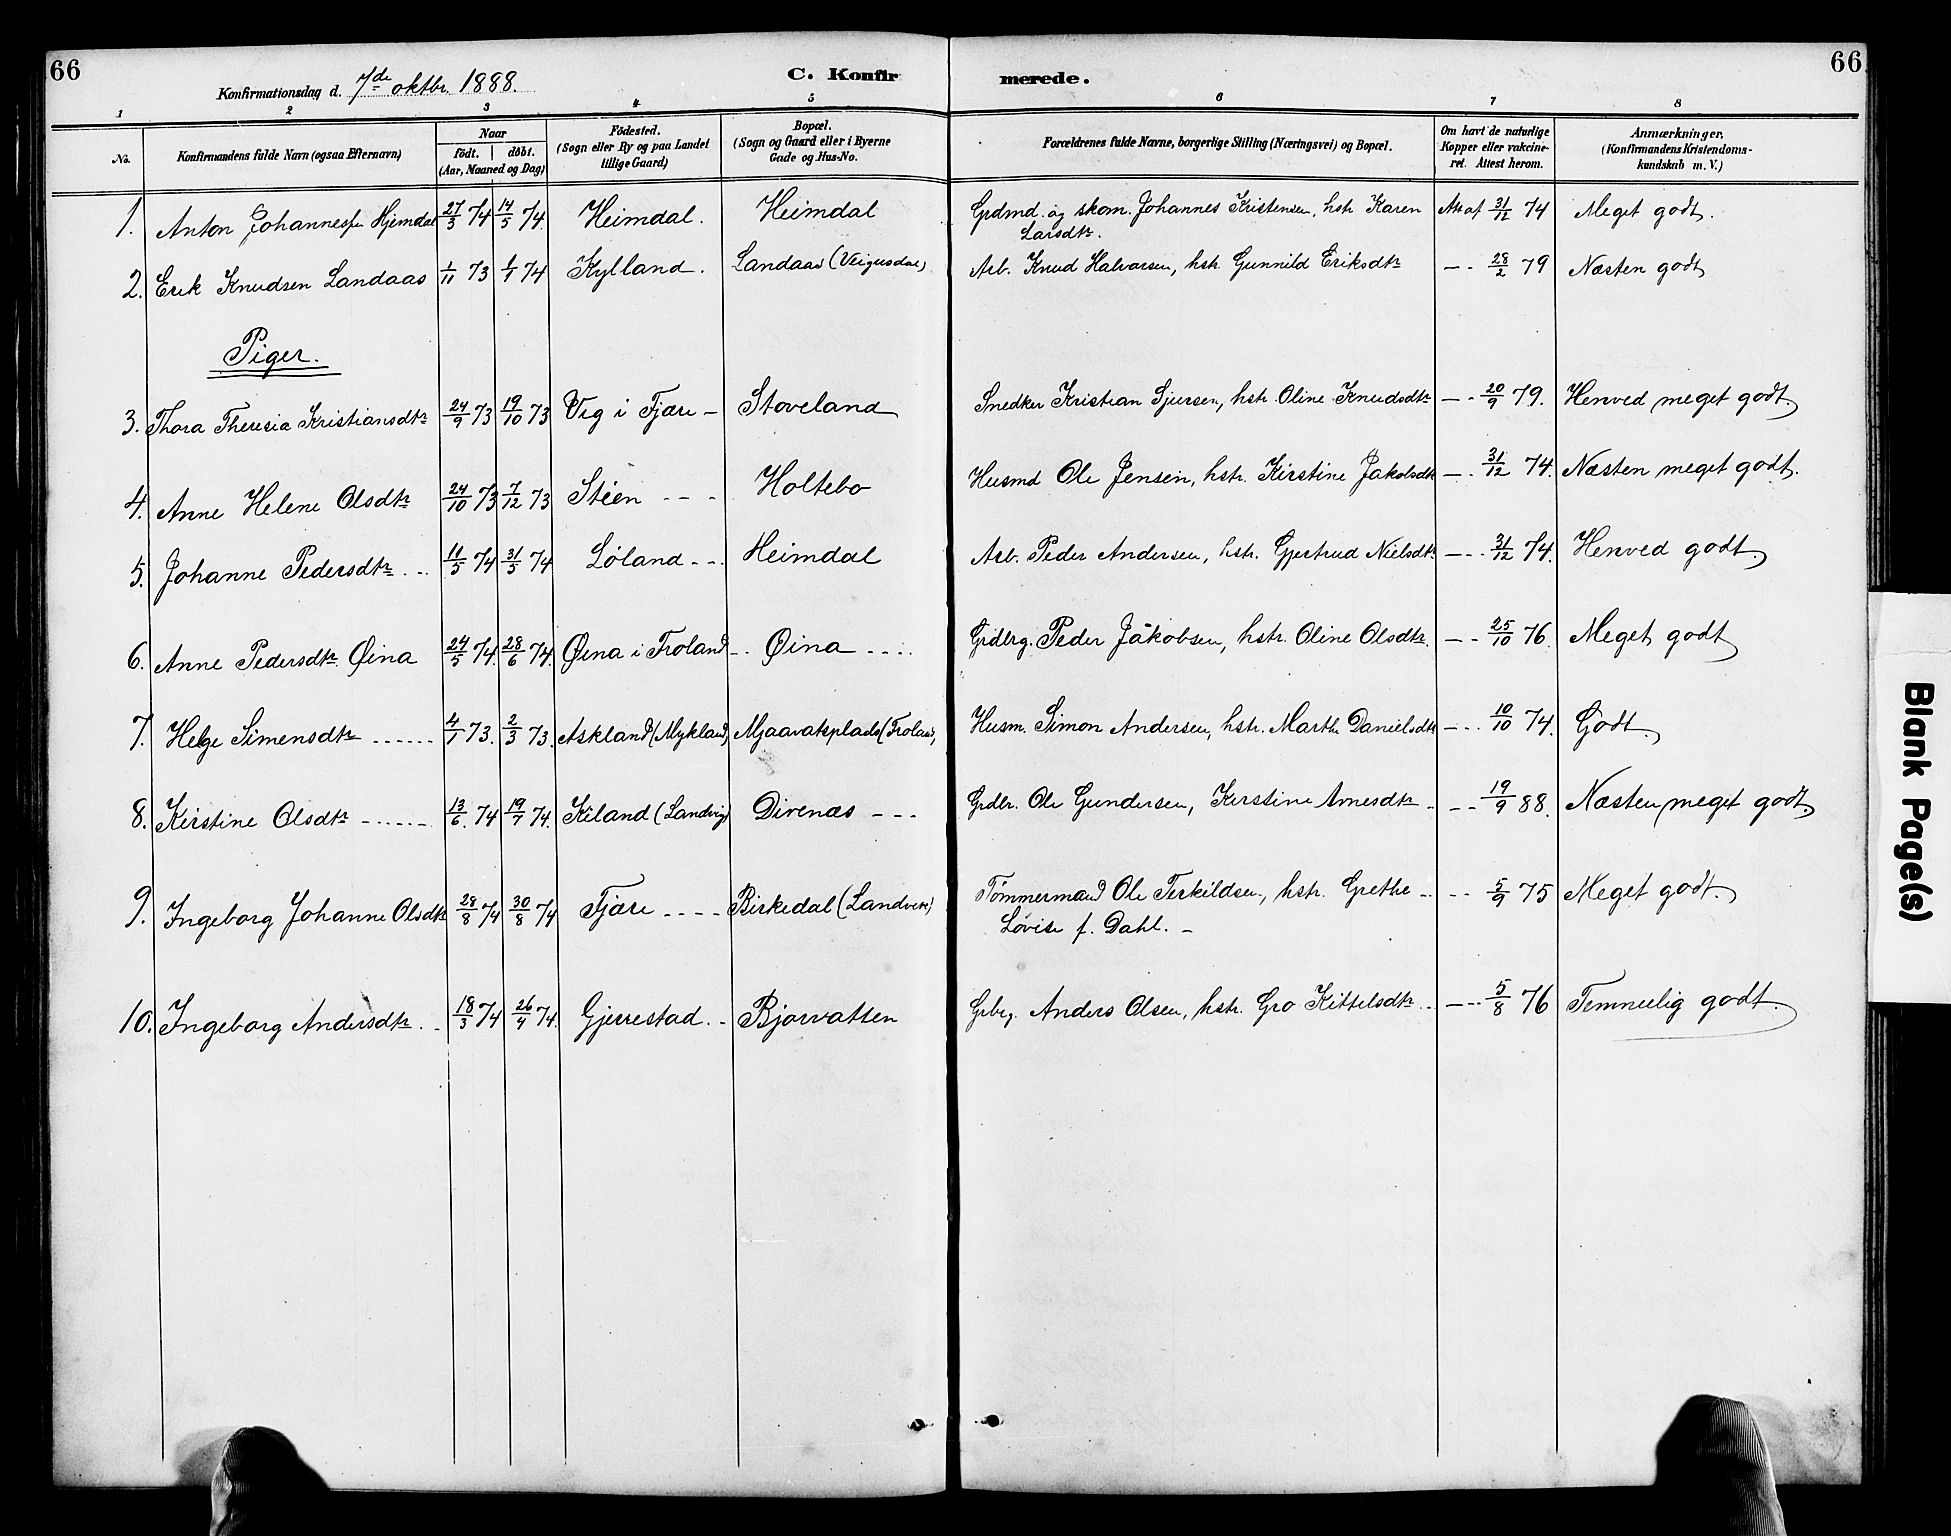 66
Konfirmationsdag d. 7de oktbr. 1888.
C. Konfirmerede.
66
1 2 3 4 5 6 7 8
No.
Konfirmandens fulde Navn (ogsaa Efternavn)
Naar
Født. | døbt.
(Aar, Maaned og Dag)
Fødested.
(Sogn eller By og paa Landet
tillige Gaard)
Bopæl.
(Sogn og Gaard eller i Byerne
Gade og Hus-No.
Forældrenes fulde Navne, borgerlige Stilling (Næringsvei) og Bopæl.
Om havt de naturlige
Kopper eller vakcine-
ret. Attest herom.
Anmærkninger.
(Konfirmandens Kristendoms-
kundskab m. V.)
1. Anton Johannessen Hjemdal 27/3 74 14/5 74. Heimdal. Heimdal Grdmd. og skom. Johannes Kristensen, hstr Karen Att. af 31/12 74 Meget godt.
Larsdtr.
2. Erik Knudsen Landaas 1/11 73 1/1 74 Kylland. Landaas Arb. Knud Halvorsen, hstr. Gunnild Eriksdtr — - 28/2 79 Næsten godt
Piger.
3. Thora Theresia Kristiansdtr 24/9 73 19/10 73 Vig i Fjære – Stoveland Snedker Kristian Sjursen, hstr. Oline Knudsdtr — - 20/9 79. Henved meget godt
4. Anne Helene Olsdtr 24/10 73 7/12 73 Stéen - - - Holtebo Husmd Ole Jensen, hstr. Kirstine Jakobsdtr — - 31/12 74. Næsten meget godt.
5. Johanne Pedersdtr. .. 11/5 74 31/5 74 Løland - - - Heimdal Arb. Peder Andersen, hstr. Gjertrud Nielsdtr. — - - 31/12 74. Henved godt
6. Anne Pedersdtr. Øina 24/5 74. 28/6 74. Øina i Froland - - Øina .... Grdbrg. Peder Jakobsen, hstr. Oline Olsdtr. — - 25/10 76. Meget godt
7. Helge Simensdtr ...... 4/1 73. 2/3 73. Askland (Mykland) Mjaavatsplads (Froland) Husm. Simon Andersen, hstr. Marthe Danielsdtr — - - 10/10 74. Godt.
8. Kirstine Olsdtr ...... 13/6. 74 19/7 74. Kiland (Landvig) Divenæs - - - Grdbr. Ole Gundersen, Kirstine Arnesdtr - - - 19/9 88. Næsten meget godt
9. Ingeborg Johanne Olsdtr 28/8 74 30/8 74 Fjære .... Birkedal (Landvik) Tømmermand Ole Terkildsen, hstr. Grethe - - - 5/9 75 Meget godt.
Lovise f. Dahl. –
10. Ingeborg Andersdtr. .. 18/3 74 26/4 74. Gjerrestad. - Bjorvatten Grbrg. Anders Olsen, hstr. Gro Kittelsdtr .. — - - 5/8 76 Temmelig godt.
Blank Page(s)